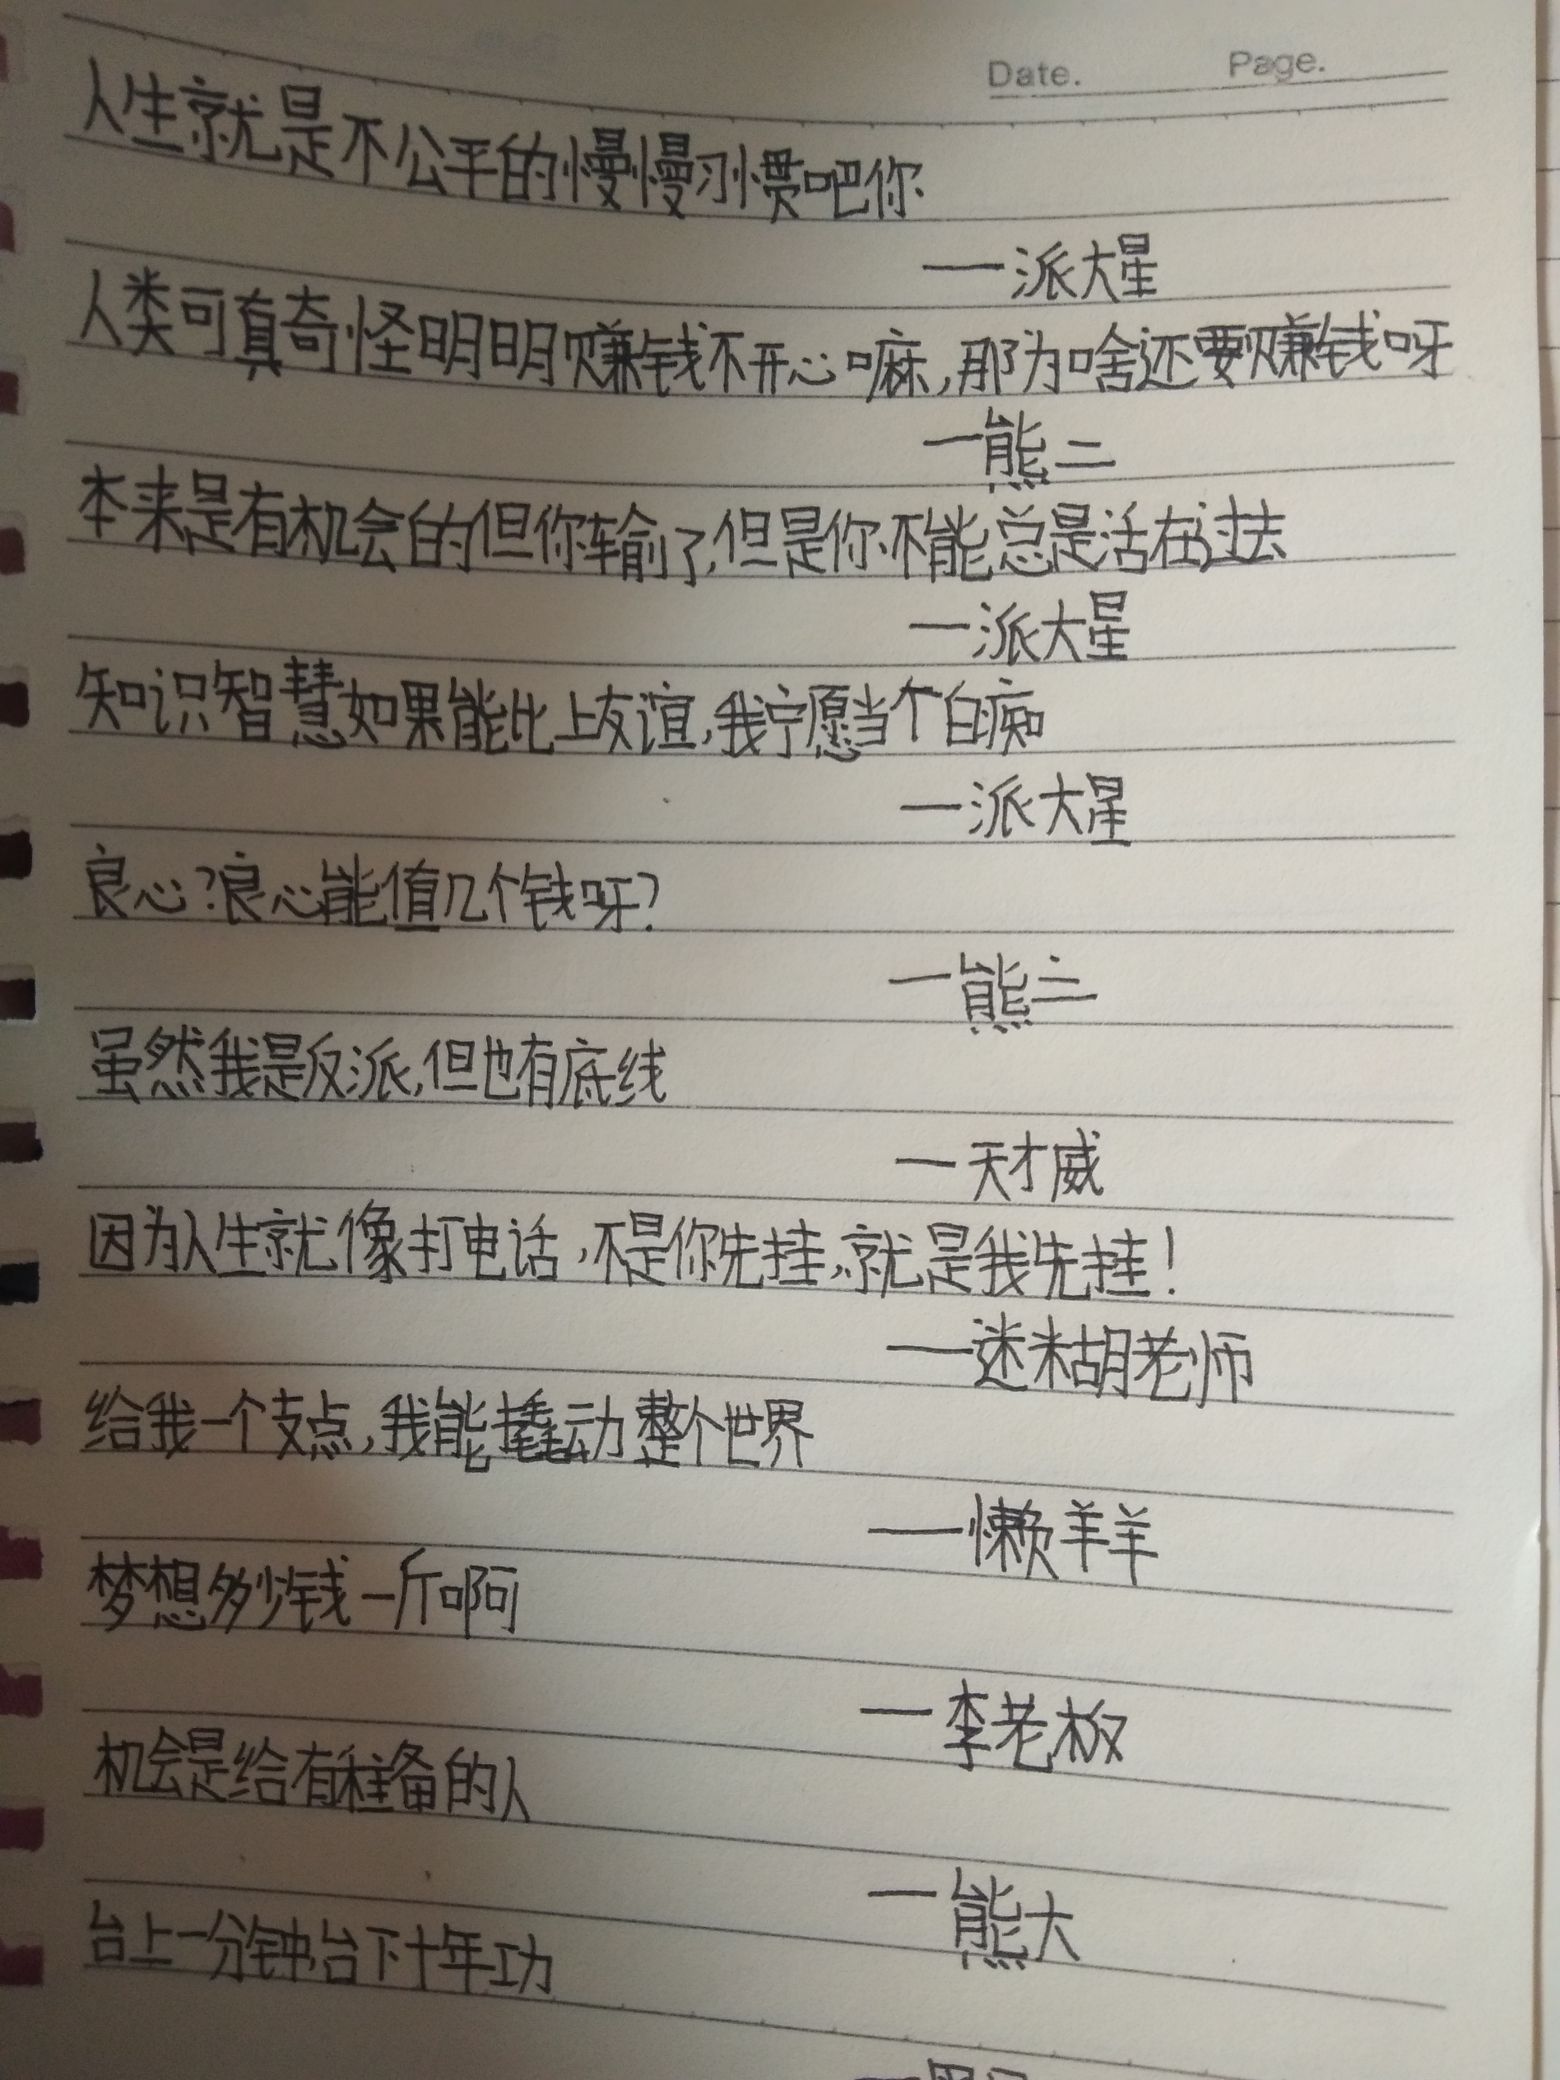 Date. Page.
人生就是不公平的慢慢习惯吧你
——派大星
人类可真奇怪明明赚钱不开心嘛,那为啥还要赚钱呀
—熊二
本来是有机会的但你输了,但是你不能总是活在过去
—派大星
知识智慧如果能比上友谊,我宁愿当个白痴
—派大星
良心?良心能值几个钱呀?
—熊二
虽然我是反派,但也有底线
—天才威
因为人生就像打电话,不是你先挂,就是我先挂!
——迷糊老师
给我一个支点,我能撬动整个世界
——懒羊羊
梦想多少钱一斤啊
—李老板
机会是给有准备的人
—熊大
台上一分钟台下十年功